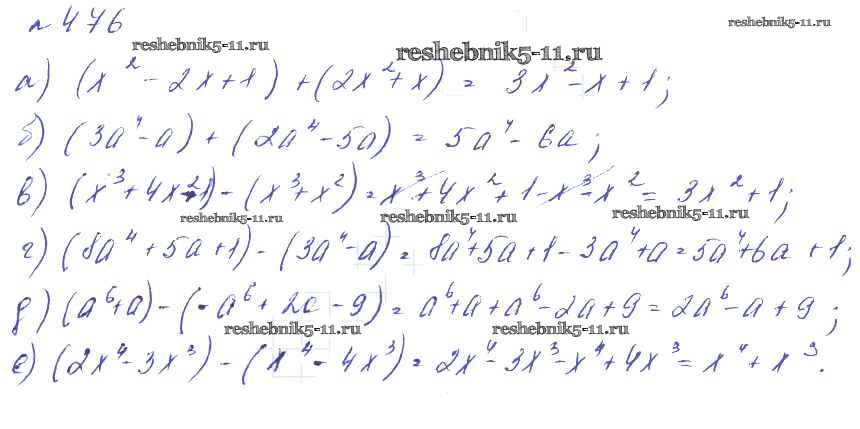 № 476
reshebnik5-11.ru
reshebnik5-11.ru
reshebnik5-11.ru
а) (x² - 2x + 1) + (2x² + x) = 3x² - x + 1;
б) (3a⁴ - a) + (2a⁴ - 5a) = 5a⁴ - 6a;
в) (x³ + 4x² + 1) - (x³ + x²) = x³ + 4x² + 1 - x³ - x² = 3x² + 1;
reshebnik5-11.ru
reshebnik5-11.ru
reshebnik5-11.ru
г) (8a⁴ + 5a + 1) - (3a⁴ - a) = 8a⁴ + 5a + 1 - 3a⁴ + a = 5a⁴ + 6a + 1;
д) (a⁶ + a) - (-a⁶ + 2a - 9) = a⁶ + a + a⁶ - 2a + 9 = 2a⁶ - a + 9;
reshebnik5-11.ru
reshebnik5-11.ru
е) (2x⁴ - 3x³) - (x⁴ - 4x³) = 2x⁴ - 3x³ - x⁴ + 4x³ = x⁴ + x³.